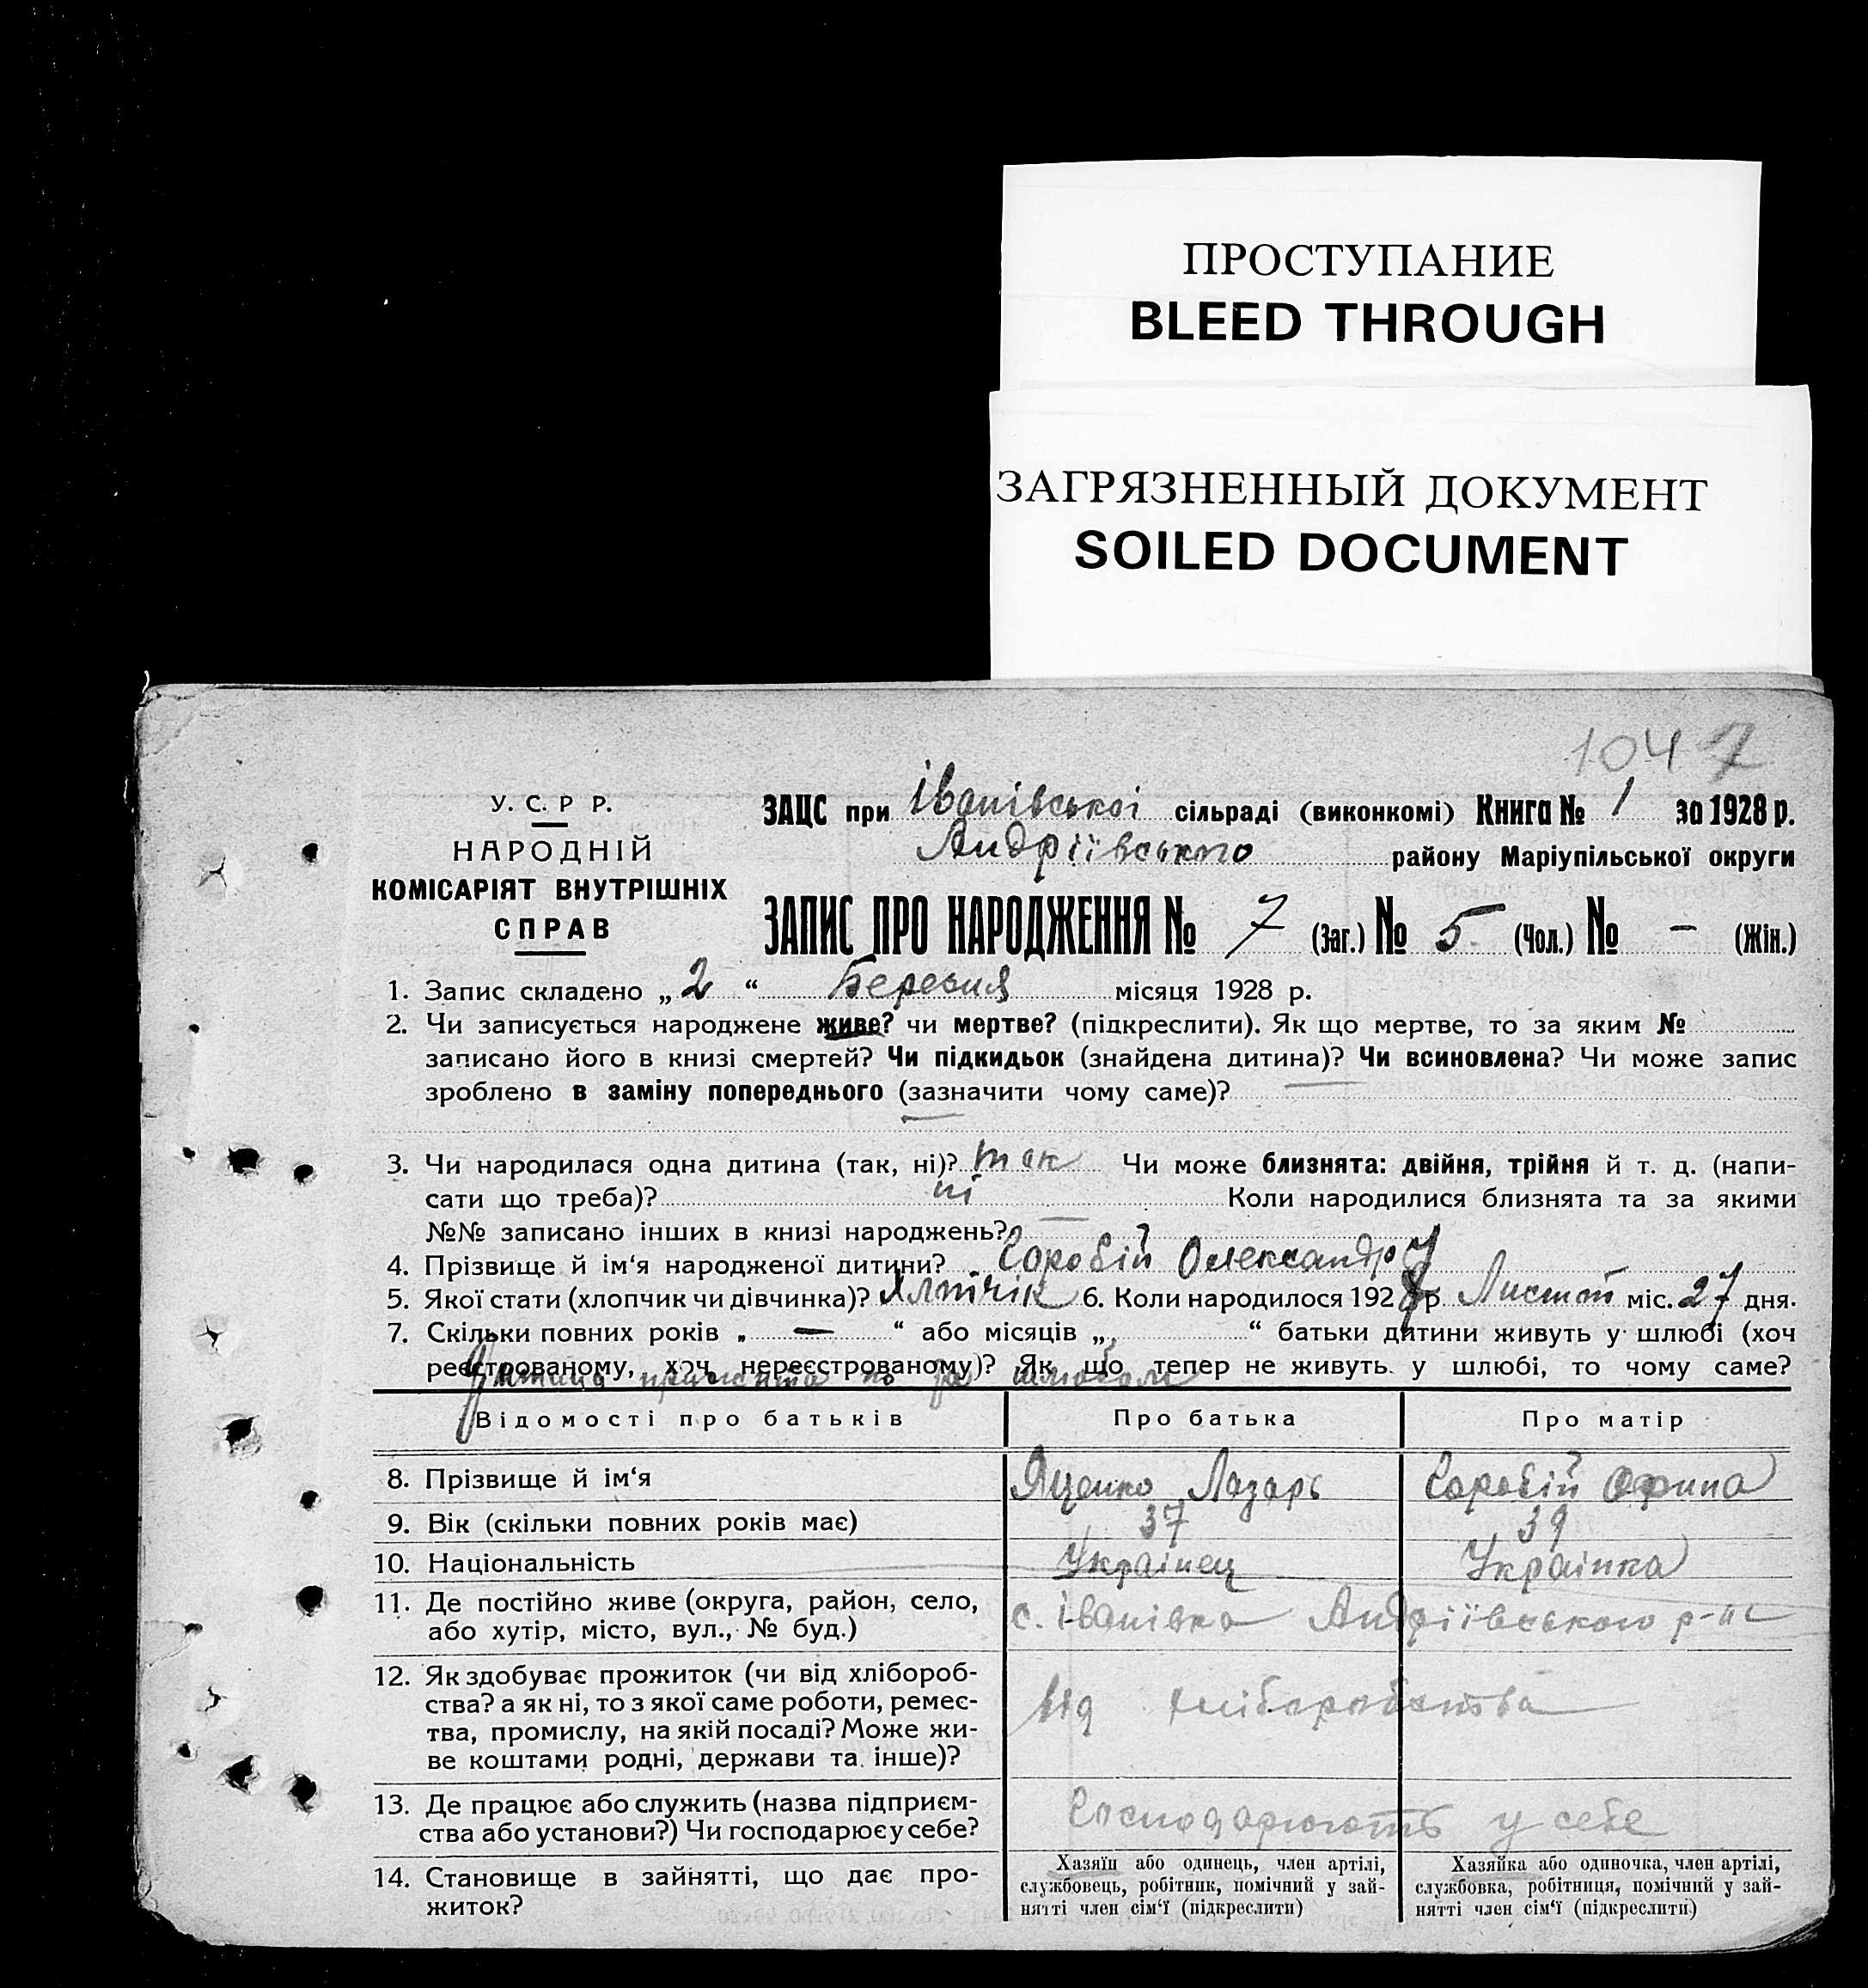 ПРОСТУПАНИЕ
BLEED THROUGH
ЗАГРЯЗНЕННЫЙ ДОКУМЕНТ
SOILED DOCUMENT
1047
У. С. Р Р.
НАРОДНІЙ
КОМІСАРІЯТ ВНУТРІШНІХ
СПРАВ
ЗАЦС при Іванівської сільраді (виконкомі) Книга № 1 за 1928 р.
Андріївського району Маріупільської округи
ЗАПИС ПРО НАРОДЖЕННЯ № 7 (Заг.) № 5 (Чол.) № – (Жін.)
1. Запис складено „ 2 “ Березня місяця 1928 р.
2. Чи записується народжене живе? чи мертве? (підкреслити). Як що мертве, то за яким №
записано його в книзі смертей? Чи підкидьок (знайдена дитина)? Чи всиновлена? Чи може запис
зроблено в заміну попереднього (зазначити чому саме)?
3. Чи народилася одна дитина (так, ні)? так Чи може близнята: двійня, трійня й т. д. (напи-
сати що треба)? ні Коли народилися близнята та за якими
№№ записано інших в книзі народжень? —
4. Прізвище й ім‘я народженої дитини? Соробій Олександр
5. Якої стати (хлопчик чи дівчинка)? 6. Коли народилося 1927 р. Листоп міс. 27 дня.
7. Скільки повних років „ — “ або місяців „ “ батьки дитини живуть у шлюбі (хоч
реєстрованому, хоч нереєстрованому)? Як що тепер не живуть у шлюбі, то чому саме?
Дитина прижита по за шлюбом
Відомості про батьків Про батька Про матір
8. Прізвище й ім‘я Яценко Лазарь Соробій
9. Вік (скільки повних років має) 37 39
10. Національність Українец Українка
11. Де постійно живе (округа, район, село,
або хутір, місто, вул., № буд.) с. Іванівка Андріївського р-н
12. Як здобуває прожиток (чи від хлібороб-
ства? а як ні, то з якої саме роботи, ремес-
тва, промислу, на якій посаді? Може жи-
ве коштами родні, держави та інше)?
Від хліборобства
13. Де працює або служить (назва підприєм-
ства або установи?) Чи господарює у себе?
Господарюють у себе
14. Становище в зайнятті, що дає про-
житок?
Хазяїн або одинець, член артілі,
службовець, робітник, помічний у зай-
нятті член сім‘ї (підкреслити)
Хазяйка або одиночка, член артілі,
службовка, робітниця, помічний у зай-
нятті член сім‘ї (підкреслити)